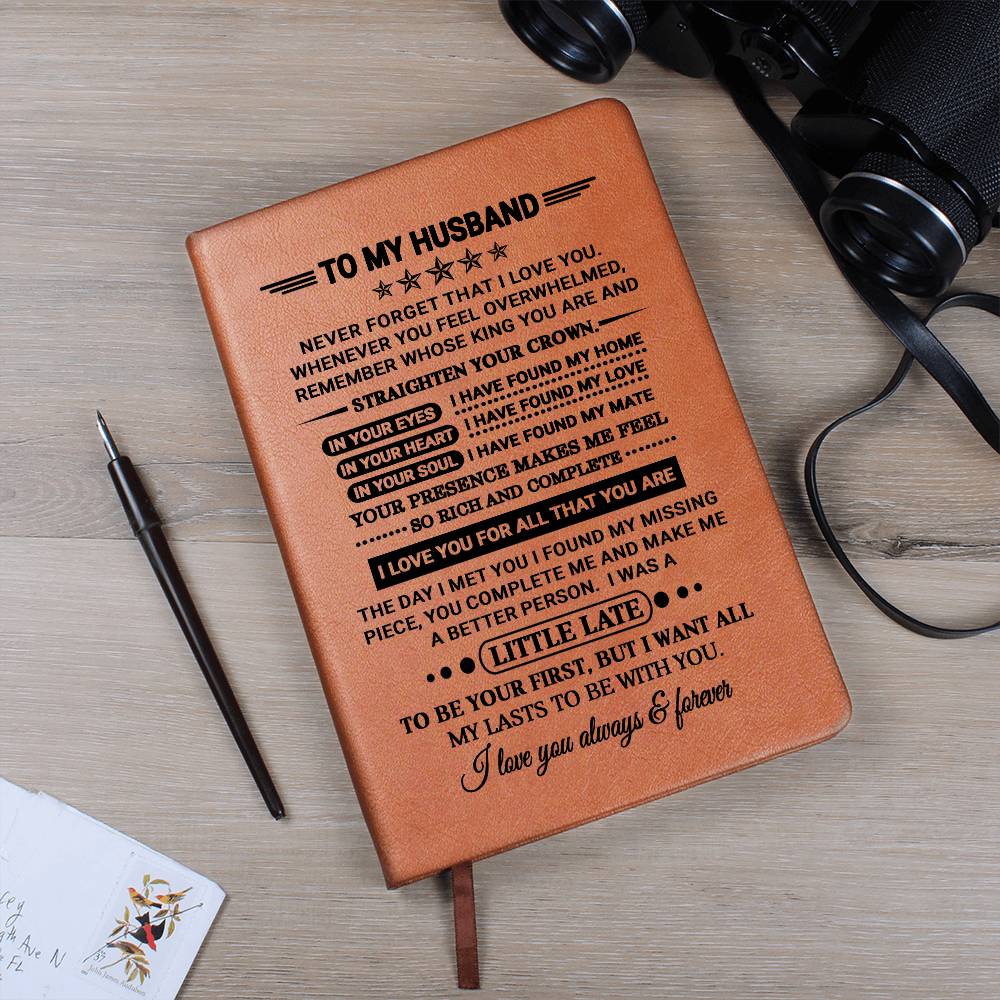 TO MY HUSBAND
NEVER FORGET THAT I LOVE YOU.
WHENEVER YOU FEEL OVERWHELMED,
REMEMBER WHOSE KING YOU ARE AND
STRAIGHTEN YOUR CROWN.
IN YOUR EYES I HAVE FOUND MY HOME
IN YOUR HEART I HAVE FOUND MY LOVE
IN YOUR SOUL I HAVE FOUND MY MATE
YOUR PRESENCE MAKES ME FEEL
SO RICH AND COMPLETE
I LOVE YOU FOR ALL THAT YOU ARE
THE DAY I MET YOU I FOUND MY MISSING
PIECE, YOU COMPLETE ME AND MAKE ME
A BETTER PERSON. I WAS A
LITTLE LATE
TO BE YOUR FIRST, BUT I WANT ALL
MY LASTS TO BE WITH YOU.
I love you always & forever
Ave N
FL
John James Audubon